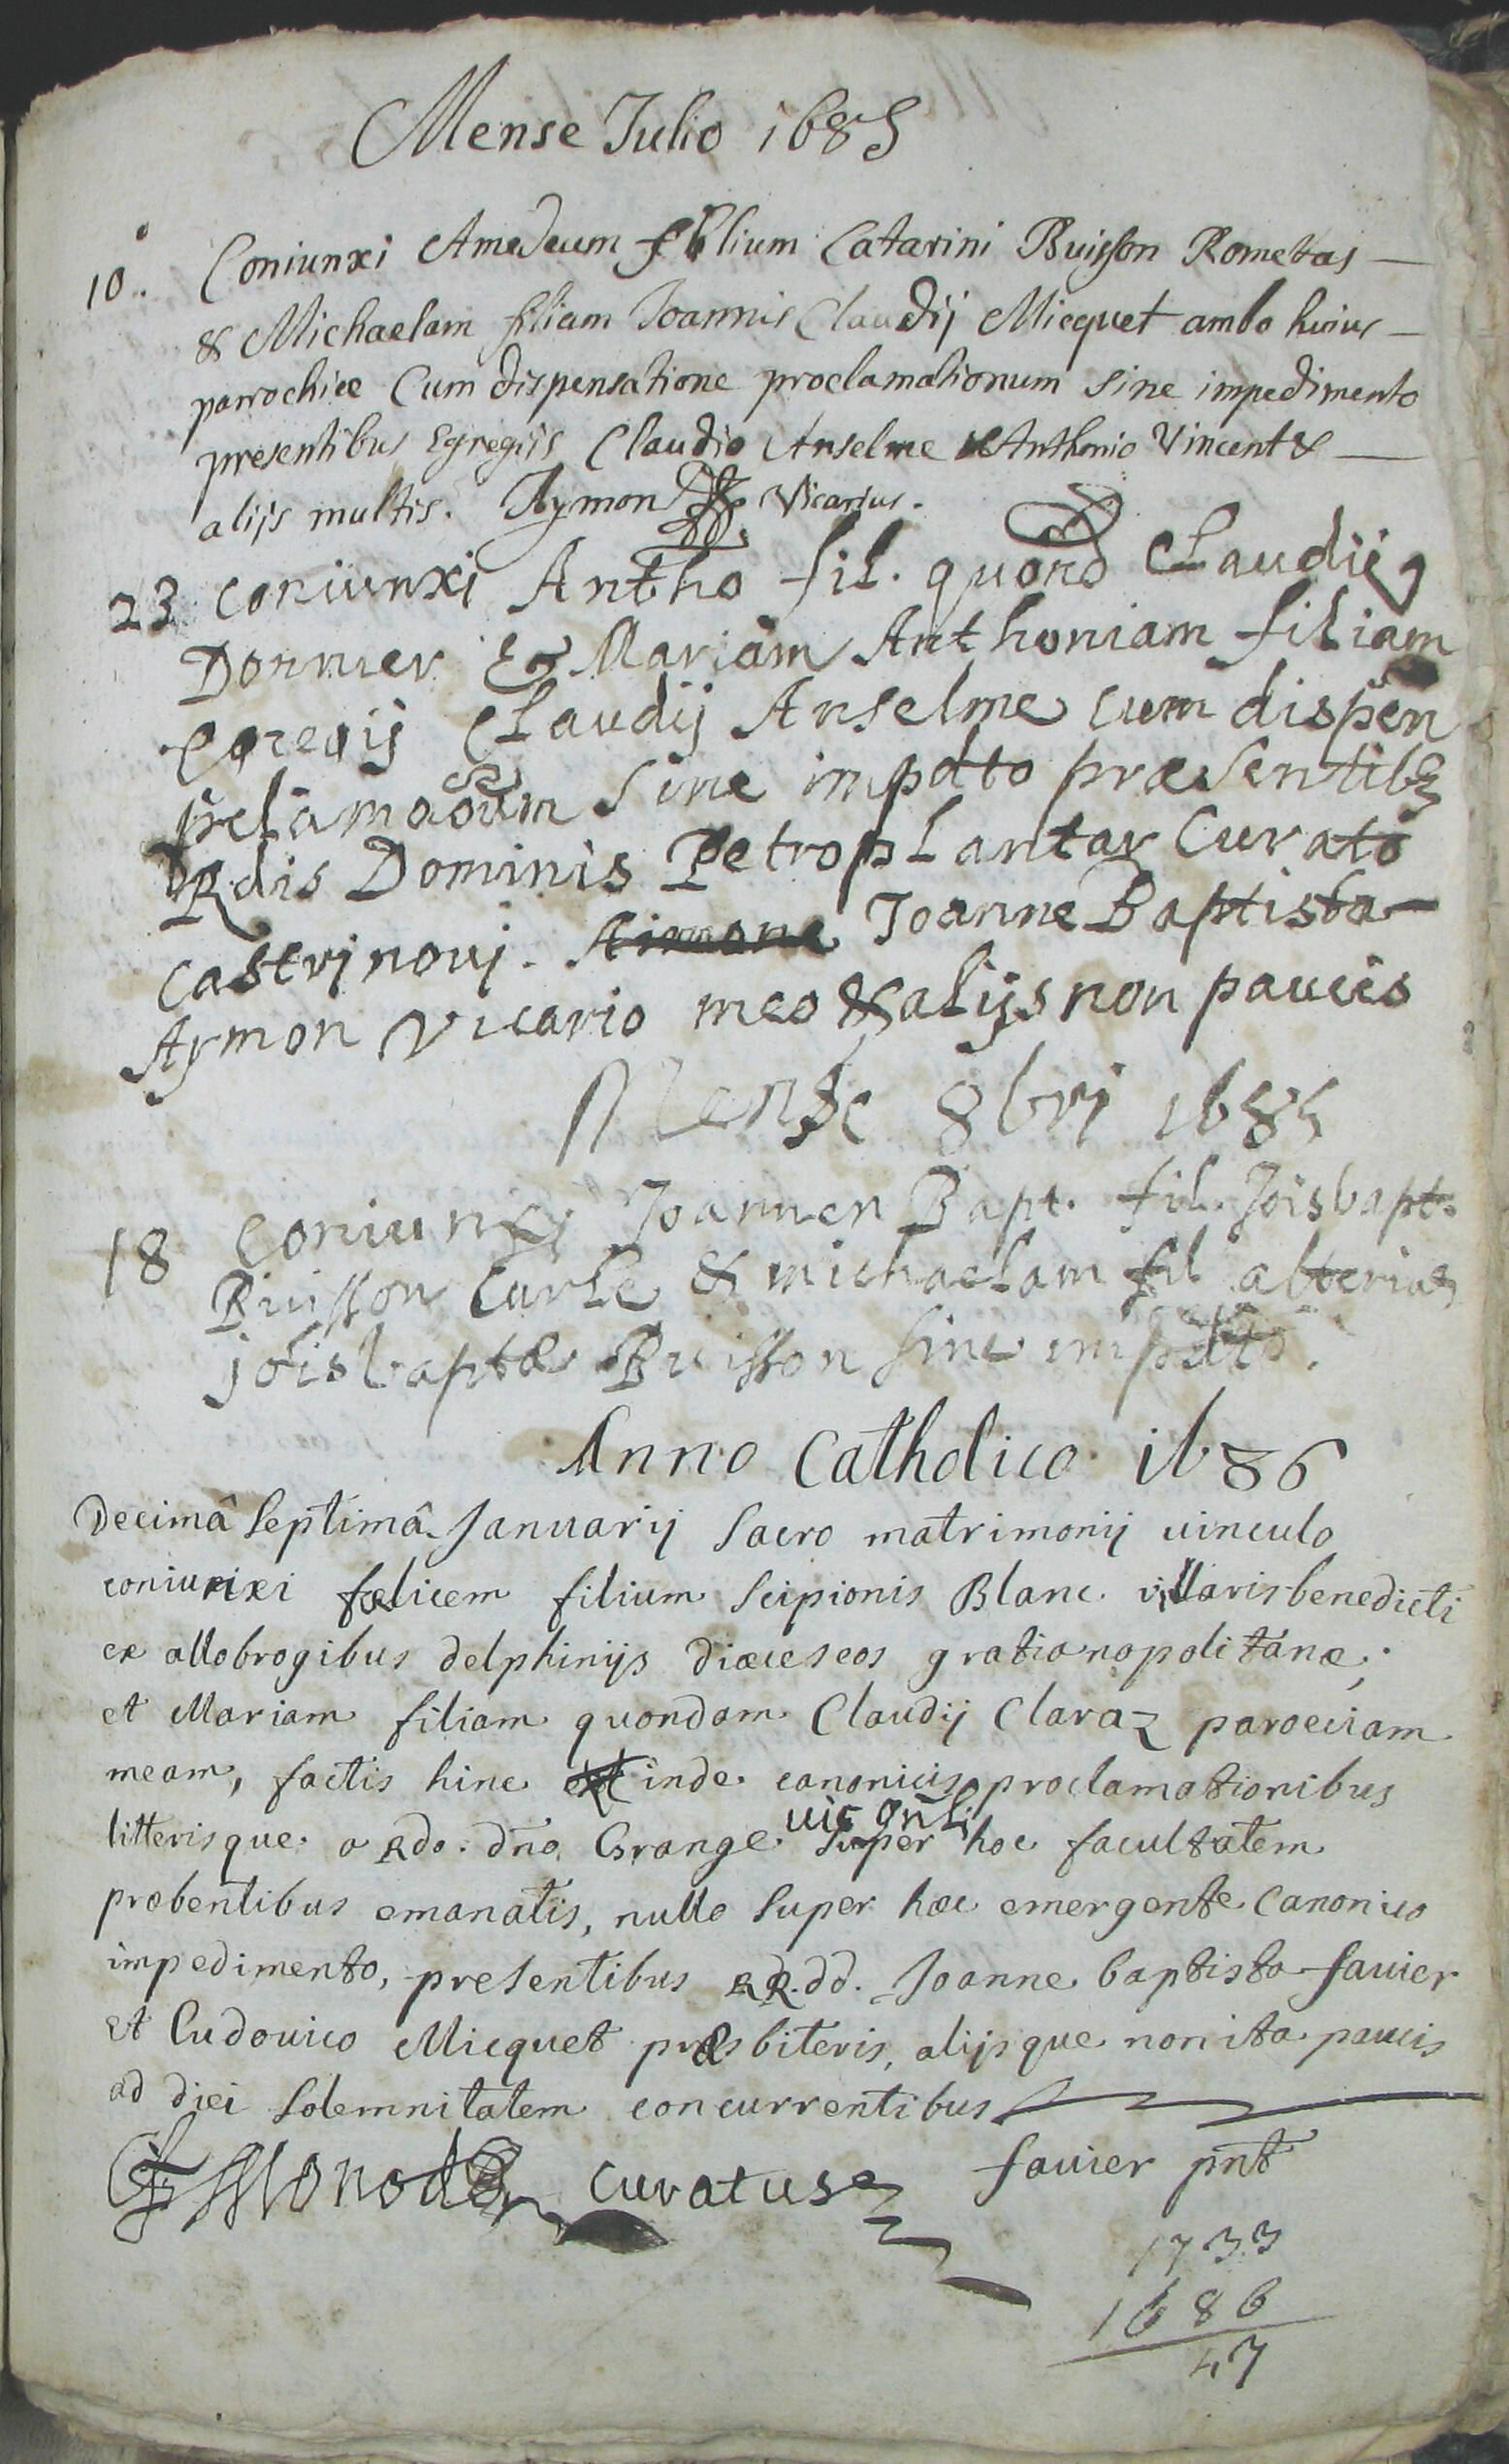 Mense Julio 1685
10. Coniunxi Amedeum filium Catarini Buisson Rometas —
& Michaelam filiam Joannis Claudij Micquet ambo huius —
parrochiæ Cum dispensatione proclamationum sine impedimento
presentibus Egregijs Claudio Anselme & Anthonio Vincent & —
alijs multis. Aymon Vicarius.
23 coniunxi Antho fil. quond Claudij
Donnier & Mariam Anthoniam filiam
egregij Claudij Anselme cum dispen
prclamaoum sine impdto præsentibz
Rdis Dominis Petro plantar Curato
castrinovj. Aimone Joanne Baptista —
Aymon Vicario meo & alijs non paucis
Mense 8brj 1685
18 coniunxj Joannen Bapt. fil. Joisbapt.
Buisson Curle & michaelam fil alterius
joisbaptæ Buisson sine impdto.
Anno Catholico 1686
Decimâ Septimâ Januarij Sacro matrimonij uinculo
coniunxi fœlicem filium Scipionis Blanc villaris benedicti
ex allobrogibus delphinijs diœceseos gratianopolitanæ;
et Mariam filiam quondam Claudij Claraz paroeciam
meam, factis hinc et inde canonicis proclamationibus
uic gnli
litterisque a Rdo. dño Grange super hoc facultatem
præbentibus emanatis, nullo super hæc emergente Canonico
impedimento, presentibus RR.dd. Joanne baptista fauier
et Ludouico Micquet præsbiteris, alijsque non ita paucis
ad diei solemnitatem concurrentibus
curatus fauier pñt
1733
1686
47